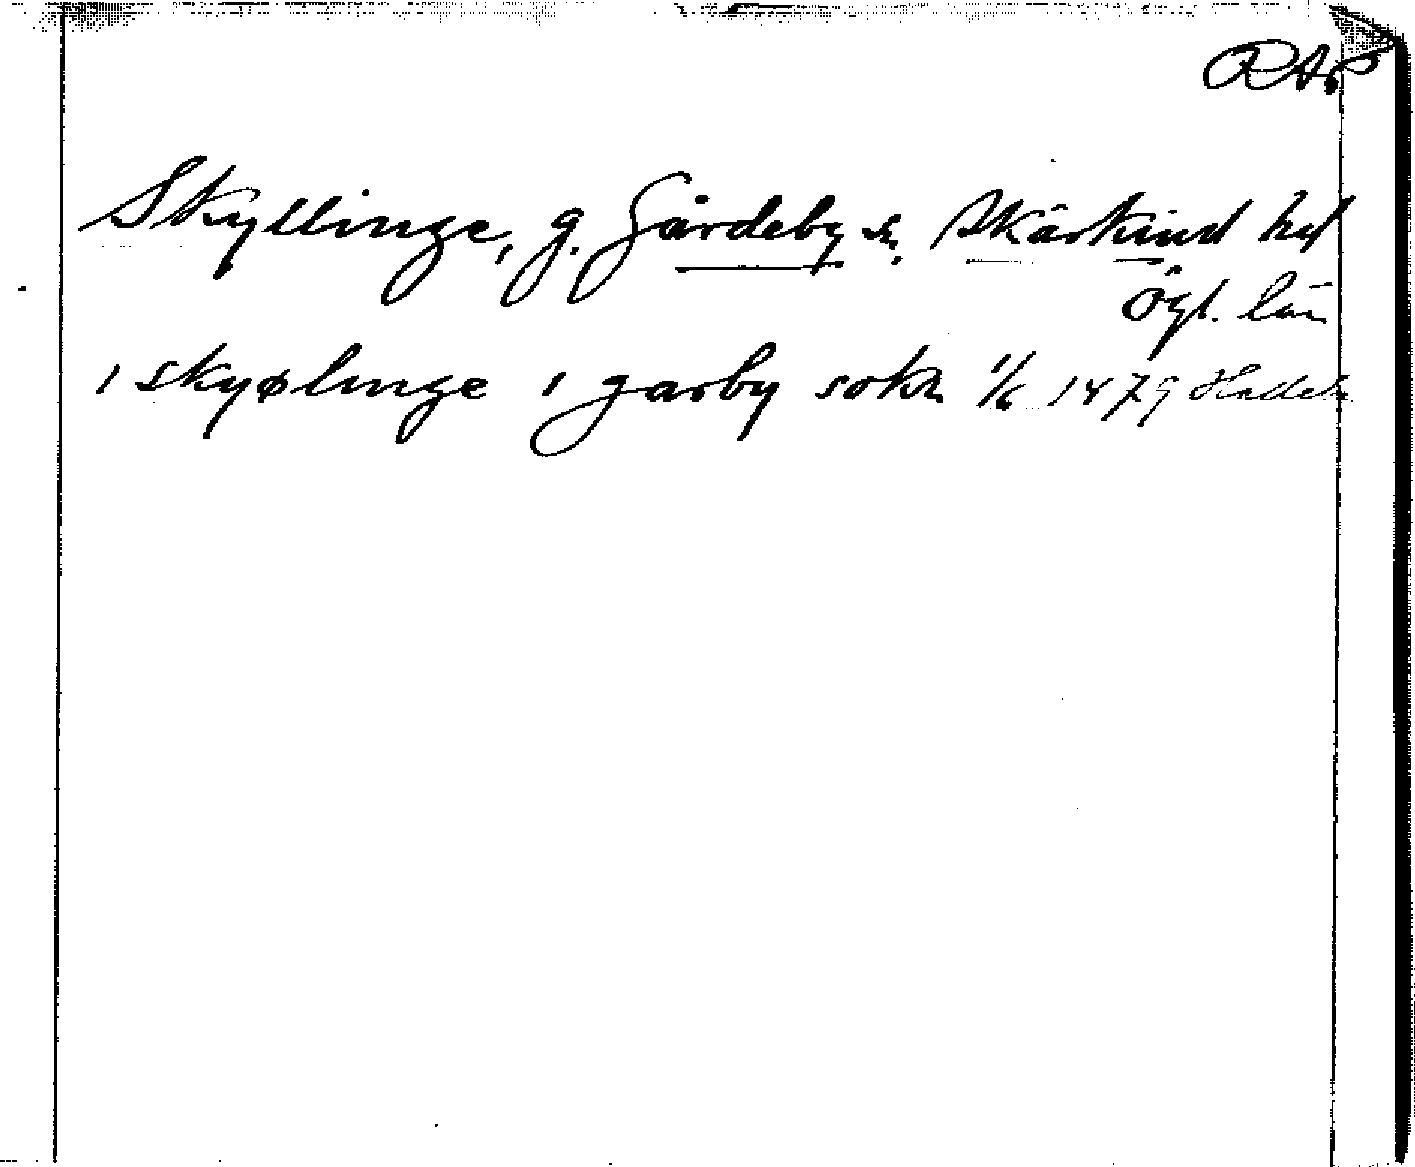 RAP
Skyllinge, g. Gårdeby s., Skärkind hd
Ögl. län
i skyølinge i garby sokn 1/6 1479